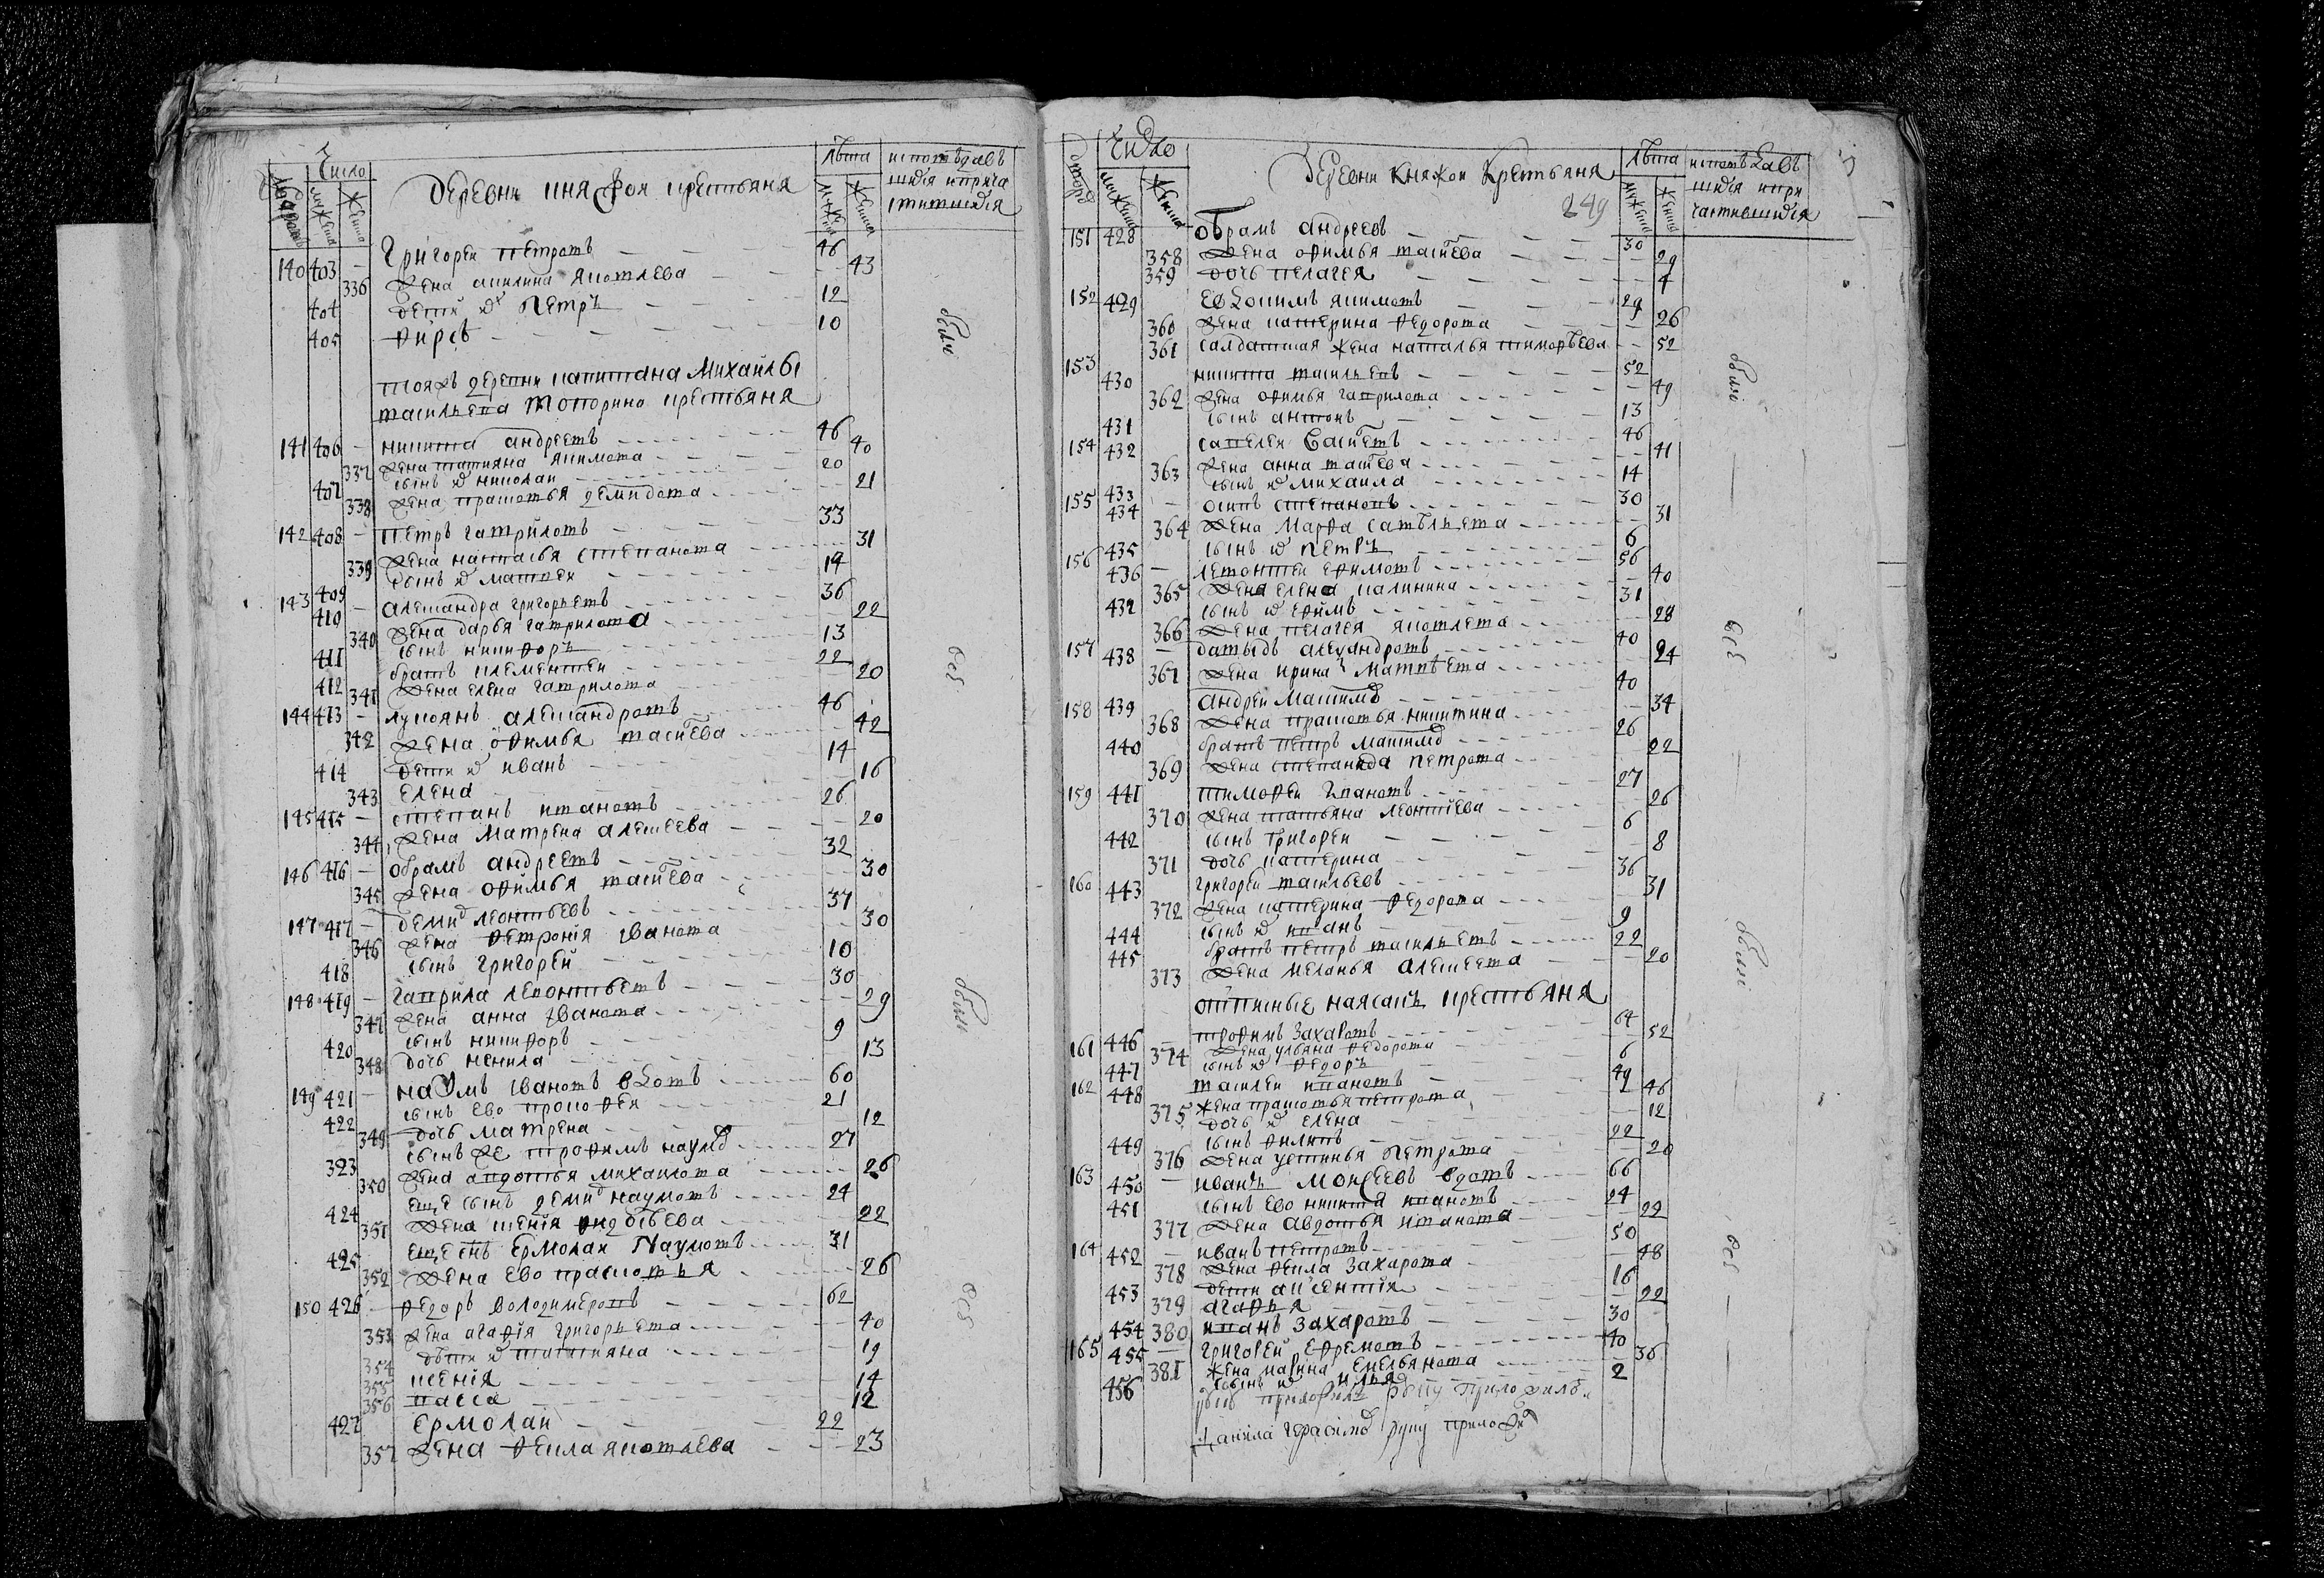 Число
лѣта
исповѣдавшияся и причастившияся
деревни княжои крестьяня
140 403 – Григореи петровъ 46
336 жена акилина яковлева 43
404 дети их петръ 12
405 фирсъ 10
тояжъ деревни капитана Михаилы
васильева Топорина крестьяня
141 406 – никита андреевъ 46
337 жена татияна якимова 40
407 сынъ их николаи 20
338 жена прасковья демидова 21
142 408 – петръ гавриловъ 33
339 жена настасья степанова 31
409 сынъ их матвеи 14
143 410 – алеѯандра григорьевъ 36
340 жена дарья гаврилова 22
411 сынъ никифоръ 13
412 братъ клементеи 22
341 жена елена гаврилова 20
144 413 – лукоянъ алеѯандровъ 46
342 жена офимья васиева 42
414 дети их иванъ 14
343 елена 16
145 415 – степанъ ивановъ 26
344 жена матрена алеѯеева 20
146 416 – обрамъ андреевъ 32
345 жена офимья васиева 30
147 417 – деми леонтьевъ 37
346 жена фетрония иванова 30
418 сынъ григореи 10
148 419 – гаврила леонтьевъ 30
347 жена анна иванова 29
420 сынъ никифоръ 9
348 дочь ненила 13
149 421 – наумъ ивановъ вдовъ 60
422 сынъ ево прокофеи 21
349 дочь матрена 12
323 сынъ же трофимъ наумо 27
350 жена авдотья михаилова 26
424 еще сынъ деми наумовъ 24
351 жена ксения авдѣева 22
425 еще снъ ермолаи Наумовъ 31
352 жена ево прасковья 26
150 426 – федоръ володимеровъ 62
353 жена агафия григорьева 40
354 дѣти их татияна 19
355 ксения 14
356 васса 12
427 ермолаи 22
357 жена фекла яковлева 23
были
всѣ
были
всѣ
Число
деревни княжои крестьяня
249
лѣта
исповѣдавшияся и причастившияся
151 428 обрамъ андреевъ 30
358 жена офимья васиева 29
359 дочь пелагея 4
152 429 евдокимъ якимовъ 29
360 жена катерина федорова 26
361 салдатская жена наталья тимофѣева 52
153 430 никита васильевъ 52
362 жена офимья гаврилова 49
431 сынъ антонъ 13
154 432 савелеи васиевъ 46
363 жена анна васиева 41
433 сынъ их михаила 14
155 434 – осипъ степановъ 30
364 жена марфа савѣльева 31
435 сынъ их петръ 6
156 436 – левонтеи ефимовъ 56
365 жена елена калинина 40
437 сынъ их ефимъ 31
366 жена пелагея яковлева 28
157 438 – давыдъ алеѯандровъ 40
367 жена ирина матвѣева 24
158 439 андреи максимо 40
368 жена прасковья никитина 34
440 братъ петръ максимо 26
369 жена степанида петрова 22
159 441 тимофеи ивановъ 27
370 жена татьяна леонтиева 26
442 сынъ григореи 6
371 дочь катерина 8
160 443 григореи васильевъ 36
372 жена катерина федорова 31
444 сынъ их иванъ 9
445 братъ петръ васильевъ 22
373 жена меланья алеѯеева 20
крестьяня
161 446 – трофимъ захаровъ 64
374 жена ульяна федорова 52
447 сынъ их федоръ 6
162 448 василеи ивановъ 49
375 жена прасковья петрова 46
дочь их елена 12
449 сынъ филипъ 22
376 жена устинья петрова 20
163 450 – иванъ моисеевъ вдовъ 66
451 сынъ ево никита ивановъ 24
377 жена авдотья иванова 22
164 452 – иванъ петровъ 50
378 жена фекла захарова 48
453 дети аксентия 16
379 агафья 22
454 380 иванъ захаровъ 30
165 455 – григореи ефремовъ 40
381 жена марина емельянова 36
456 сынъ их илья 2
руку приложилъ
данила герасимо руку приложи
были
всѣ
были
всѣ